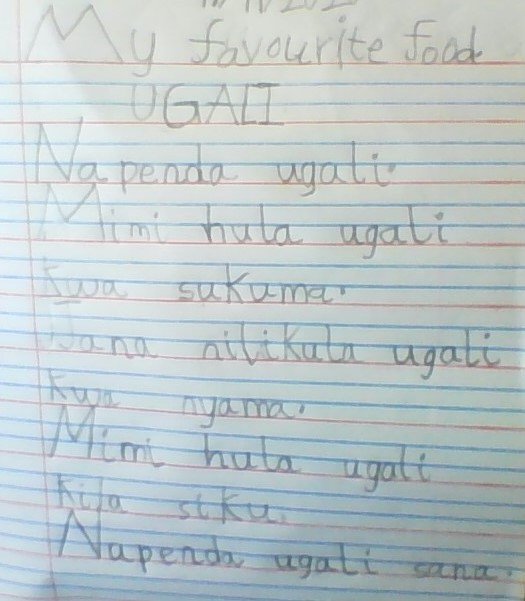 My favourite food
UGALI
Napenda ugali.
Mimi hula ugali
kwa sukuma.
Jana nilikula ugali
kwa nyama.
Mimi hula ugali
kila siku.
Napenda ugali sana.